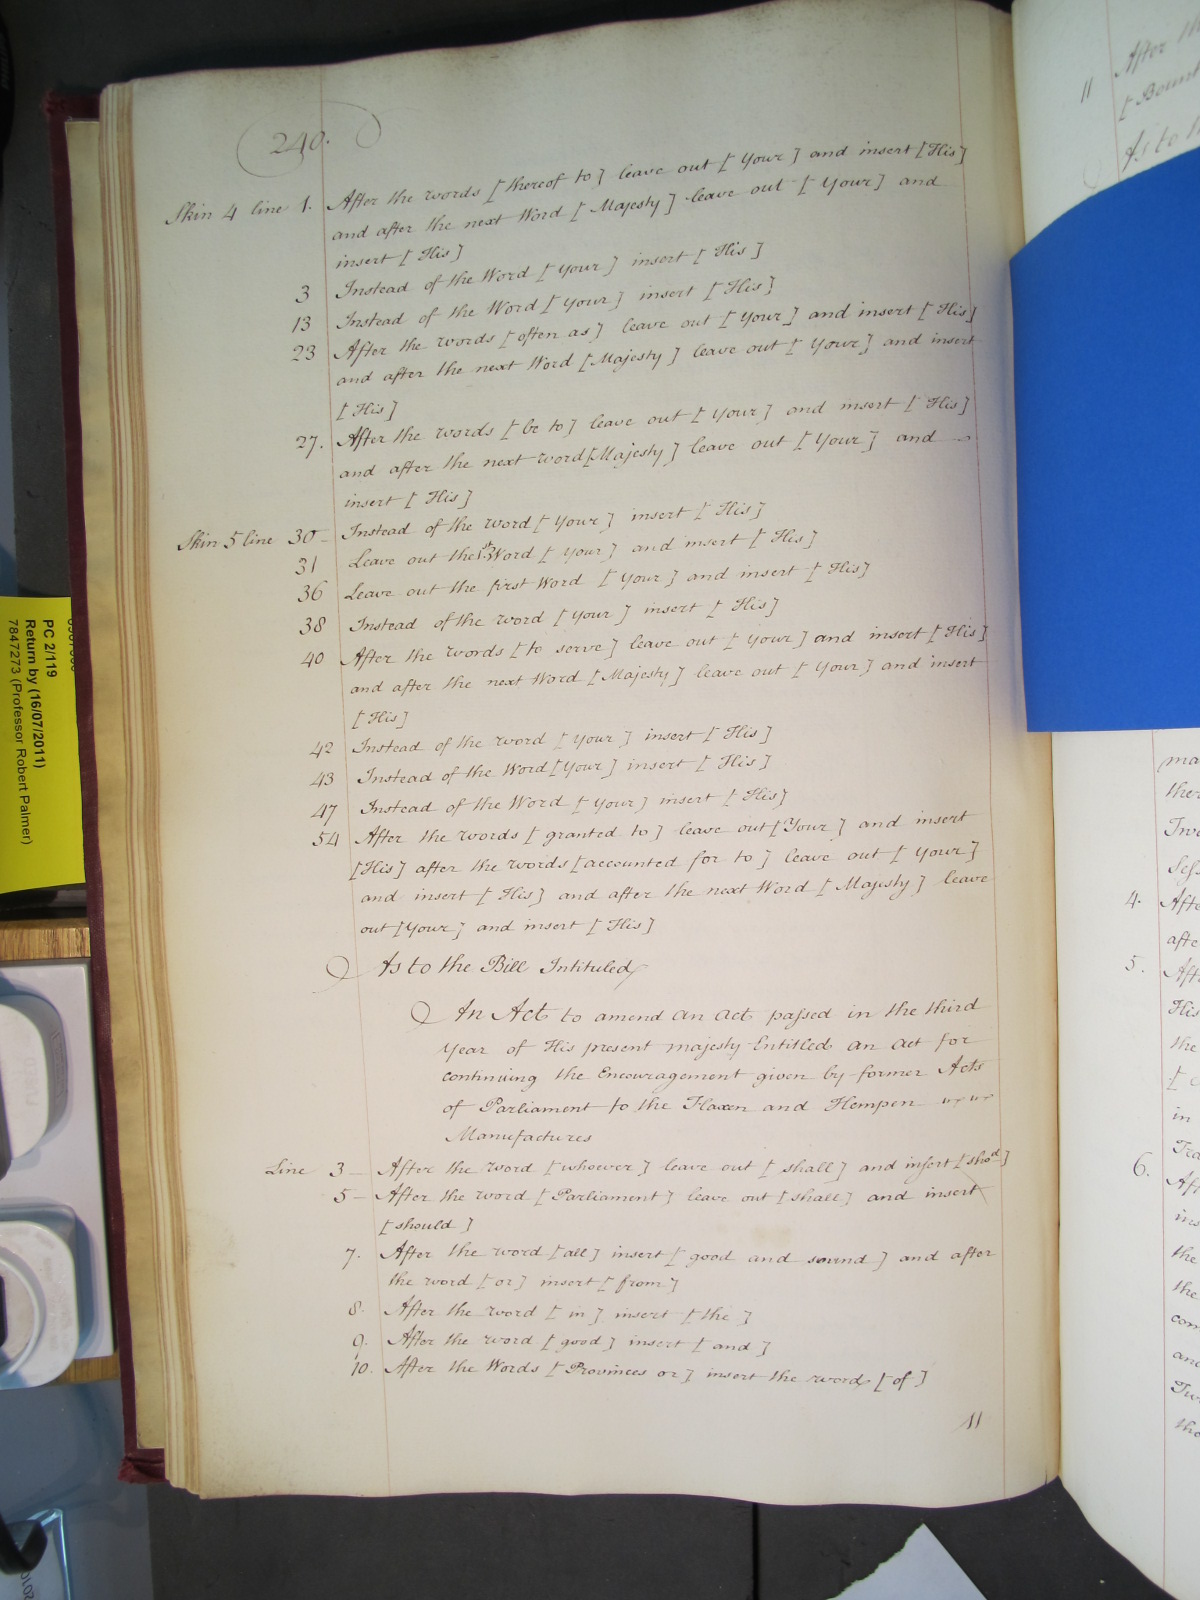 240.
Skin 4 line 1. After the words [thereof to] leave out [Your] and insert [His]
and after the next Word [Majesty] leave out [Your] and
insert [His]
3 Instead of the Word [Your] insert [His]
13 Instead of the Word [Your] insert [His]
23 After the words [often as] leave out [Your] and insert [His]
and after the next Word [Majesty] leave out [Your] and insert
[His]
27. After the words [be to] leave out [Your] and insert [His]
and after the next word [Majesty] leave out [Your] and
insert [His]
Skin 5 line 30 - Instead of the word [Your] insert [His]
31 Leave out the 1st Word [Your] and insert [His]
36 Leave out the first Word [Your] and insert [His]
38 Instead of the word [Your] insert [His]
40 After the words [to serve] leave out [Your] and insert [His]
and after the next Word [Majesty] leave out [Your] and insert
[His]
42 Instead of the word [Your] insert [His]
43 Instead of the Word [Your] insert [His]
47 Instead of the Word [Your] insert [His]
54 After the words [granted to] leave out [Your] and insert
[His] after the words [accounted for to] leave out [Your]
and insert [His] and after the next Word [Majesty] leave
out [Your] and insert [His]
As to the Bill Intituled
An Act to amend an act passed in the third
Year of His present majesty Entitled an act for
continuing the Encouragement given by former Acts
of Parliament to the Flaxen and Hempen
Manufactures
Line 3 - After the word [whoever] leave out [shall] and insert [shod]
5 - After the word [Parliament] leave out [shall] and insert
[should]
7. After the word [all] insert [good and sound] and after
the word [or] insert [from]
8. After the word [in] insert [the]
9. After the word [good] insert [and]
10. After the Words [Provinces or] insert the word [of]
11
11 After
[
As to
ma
ther
Twe
Sess
4. Afte
afte
5. Aft
His
the
in
Tra
6. Aft
ins
the
the
com
and
Tw
tho
PC 2/119
Return by (16/07/2011)
7847273 (Professor Robert Palmer)